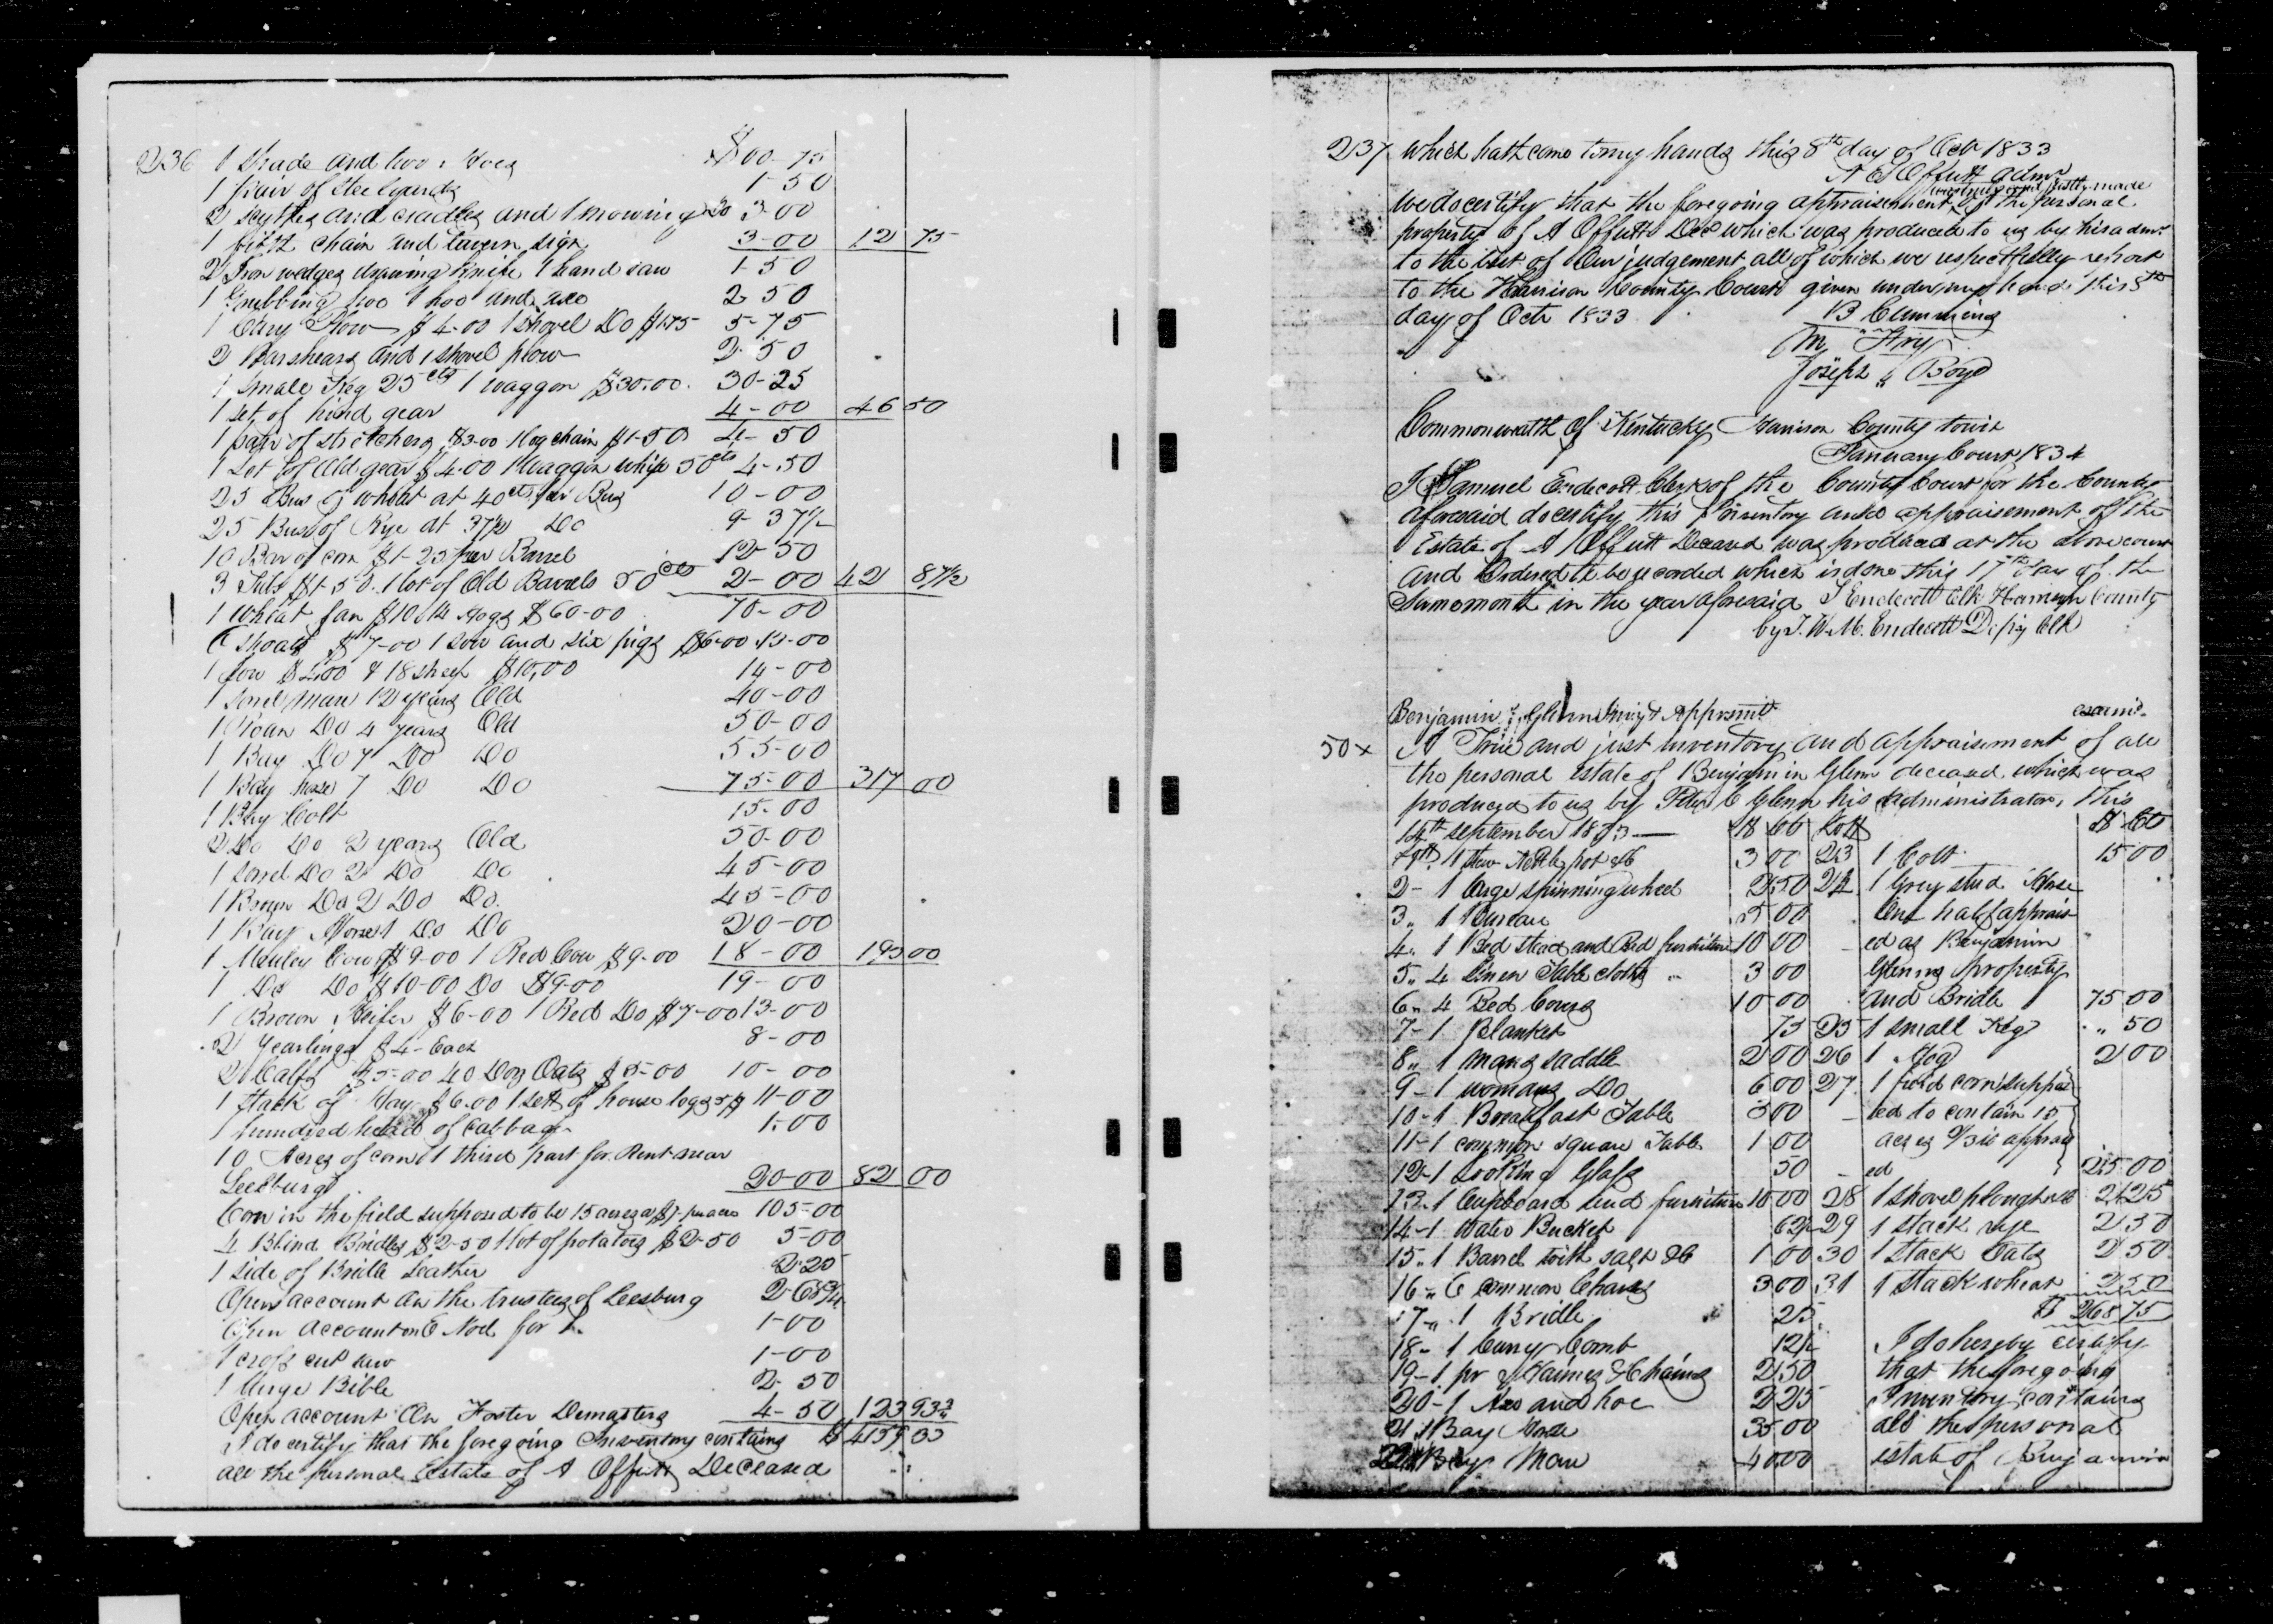 236 1 Spade and two Hoes $00-75
1 pair of Steelyards 1-50
2 Scythes and cradles and 1 mowing Do 3-00
1 fifth chain and tavern sign 3-00 12 75
2 Iron wedges drawing knife 1 hand saw 1-50
1 Grubbing hoe 1 hoe and axe 2 50
1 Cary Plow $4-00 1 Shovel Do $1-75 5-75
2 Barshears and 1 shovel plow 2-50
1 small Keg 25 cts 1 waggon $30.00. 30-25
1 set of hind gear 4-00 46 50
1 pair of stretchers $3-00 1 log chain $1-50 4-50
1 Set of old gear $4-00 1 Waggon whip 50 cts 4-50
25 Bus of wheat at 40 cts per Bus 10-00
25 Bus of Rye at 37½ Do 9-37½
10 Bar of corn $1-25 per Barrel 12-50
3 Tubs $1-50. 1 lot of Old Barrels 50 cts 2-00 42 87½
1 Wheat fan $10 14 Hogs $60-00 70-00
6 shoats $7-00 1 sow and six pigs $6-00 13-00
1 Sow $4.00 & 18 sheep $10,00 14-00
1 Sorrel Mare 12 years Old 40-00
1 Roan Do 4 years Old 50-00
1 Bay Do 7 Do Do 55-00
1 Bay horse 7 Do Do 75-00 317 00
1 Bay Colt 15-00
2 Do Do 2 years Old 50-00
1 Sorrel Do 2 Do Do 45-00
1 Brown Do 2 Do Do. 45-00
1 Bay Horse 1 Do Do 20-00
1 Mauley Cow $9-00 1 Red Cow $9-00 18-00 193 00
1 Do Do $10-00 Do $9-00 19-00
1 Brown Heifer $6-00 1 Red Do $7-00 13-00
2 Yearlings $4- Each 8-00
2 Calfs $5-00 40 Doz Oats $5-00 10-00
1 Stack of Hay $6.00 1 Sett of house logs 5$ 11-00
1 hundred heads of Cabbage 1-00
10 Acres of corn 1 third part for Rent near
Leesburg 20-00 82 00
Corn in the field supposed to be 15 acres at $7 per acre 105-00
4 Blind Bridles $2-50 1 lot of potatoes $2-50 5-00
1 side of Bridle Leather 2-25
Open account on the trustees of Leesburg 2-68¾
Open account on C Noel for 1. 1-00
1 cross cut saw 1-00
1 large Bible 2-50
Open account On Foster Demasters 4-50 123 93¾
I do certify that the foregoing Inventory contains
all the personal Estate of A Offutt Deceased
237 which hath come to my hands this 8th day of Oct 1833
Offutt admr
We do certify that the foregoing appraisement was truly and justly made of the personal
property of A Offutt Decd which was produced to us by his admr
to the best of Our judgement all of which we respectfully report
to the Harrison County Court given under my hand this 8th
day of Octr 1833
B Cummins
Joseph Boyd
Commonwealth of Kentucky Harrison County towit
January Court 1834
I Samuel Endecott Clerk of the County Court for the County
aforesaid do certify this Inventory and appraisement of the
Estate of A Offutt Deceased was produced at the above court
and Ordered to be recorded which is done this 17th day of the
Same month in the year aforesaid S Endecott Clk Harrison County
by J. W. M. Endecott Dpty Clk
Benjamin Glenn Inv'y & Apprsmt examd.
50 x A True and just inventory and appraisement of all
the personal estate of Benjamin Glenn deceased which was
produced to us by Peter C Glenn his administrator, this
14th September 1833 $ Cts Lott $ Cts
Lott 1 Stew Kettle pot &c 3 00 23 1 Colt 15 00
2- 1 large spinning wheel 2 50 24 1 Grey stud Horse
3 „ 1 Bureau 5 00 One half apprais
4 „ 1 Bed stead and Bed furniture 10 00 ed as Benjamin
5 „ 4 linen Table cloths 3 00 Glenns property
6 „ 4 Bed Covers 10 00 and Bridle 75 00
7- 1 Blanket 75 25 1 small Keg 50
8 „ 1 mans saddle 2 00 26 1 Hog 2 00
9- 1 womans Do 6 00 27 1 field corn suppos
10-1 Breakfast Table 3 00 ed to contain 15
11-1 common square Table 1 00 acres apprais
12-1 Looking Glass 50 ed 25 00
13-1 Cupboard and furniture 10 00 28 1 shovel plough 2 25
14-1 Water Bucket 62½ 29 1 stack rye 2 50
15 „ 1 Barrel with salt &c 1 00 30 1 Stack Oats 2 50
16 „ 6 common Chairs 3 00 31 1 stack wheat 2 50
17 „ 1 Bridle 25 $ 268 75
18- 1 Curry Comb 12½ I do hereby certify
19-1 pr of Haimes & Chains 2 50 that the foregoing
20-1 Axe and hoe 2 25 Inventory contains
21 1 Bay Horse 35 00 all the personal
22 1 Bay Mare 40 00 estate of Benjamin